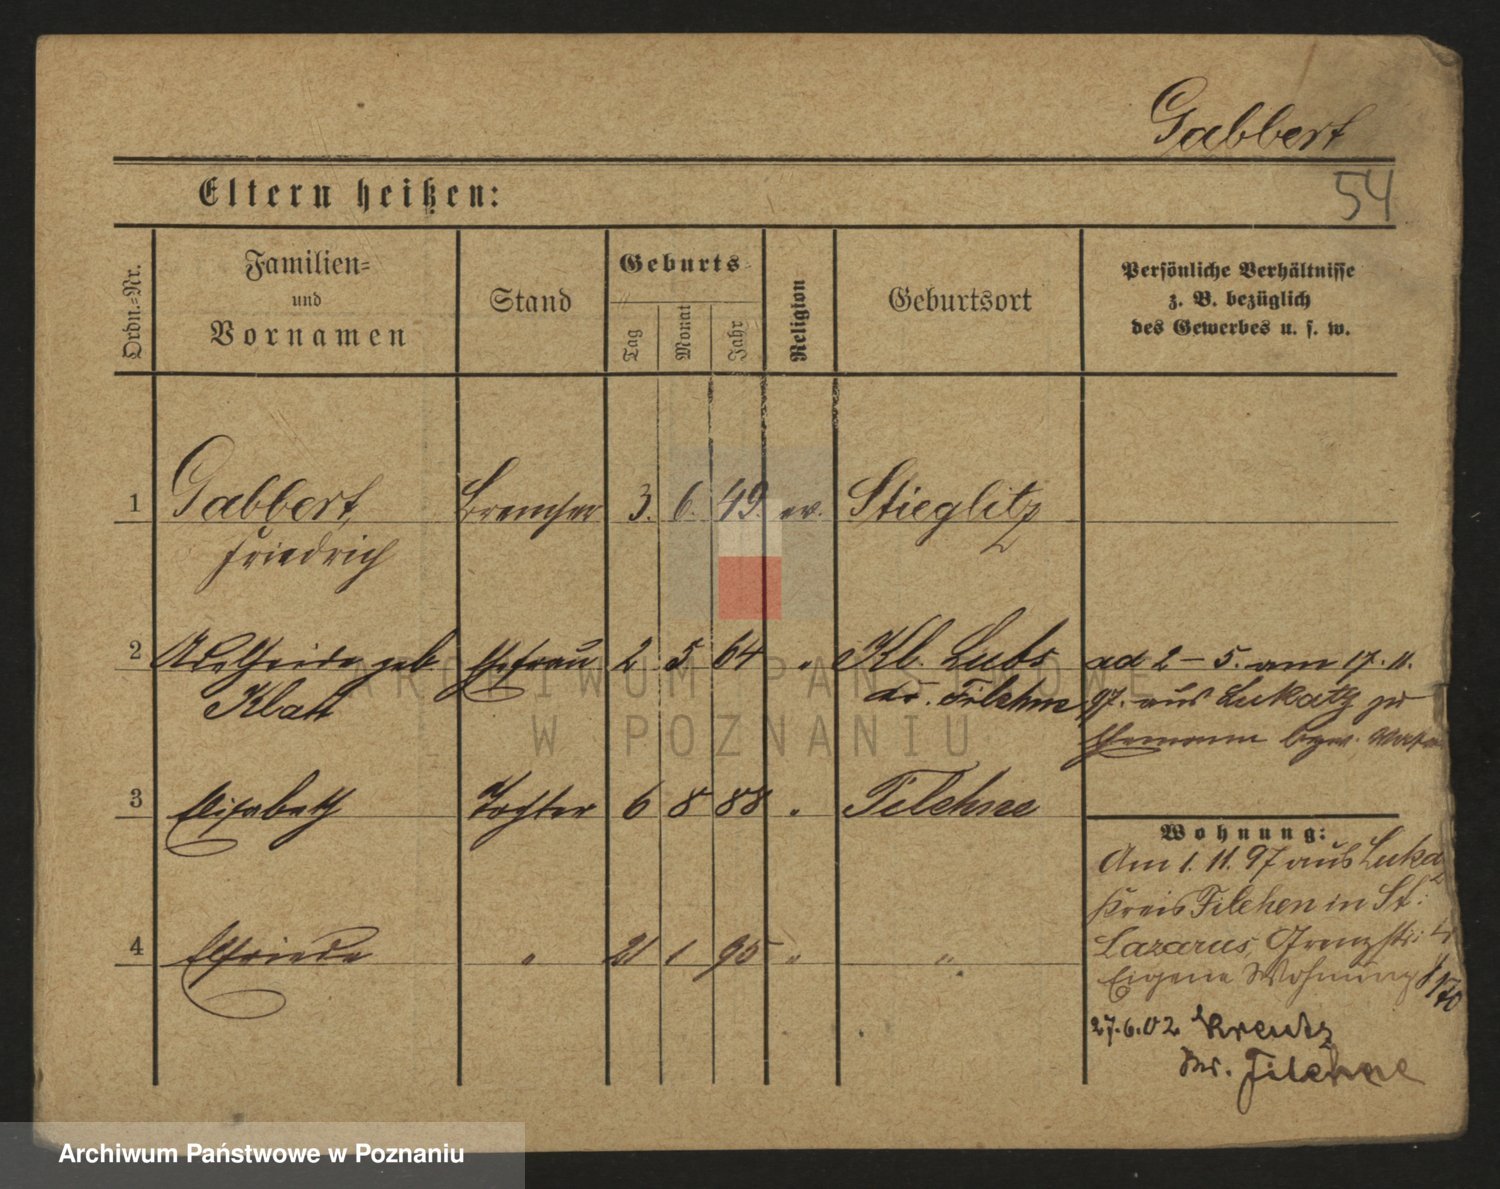 Gabbert
54
Eltern heißen:
Ordn.=Nr.
Familien=
und
Vornamen
Stand
Geburts
Tag
Monat
Jahr
Religion
Geburtsort
Persönliche Verhältnisse
z. B. bezüglich
des Gewerbes u. s. w.
1 Gabbert, Bremser 3. 6. 49. ev. Stieglitz
Friedrich
2 Adelheide geb. Ehefrau 2 5 64 " Kl. Lubs ad 2 – 5. am 17. 11.
Klatt Kr. Filehne 97. aus Lukatz zu
Ehemann bezw. Vater
3 Elisabeth Tochter 6 8 88 " Filehne
Wohnung:
Am 1. 11. 97 aus Lukatz
Kreis Filehen in St:
4 Elfriede " 21 1 95 " "
Lazarus, Grenzstr:
Eigene Wohnung
27.6.02 Kreutz
Kr. Filehne
ARCHIWUM PAŃSTWOWE
W POZNANIU
Archiwum Państwowe w Poznaniu